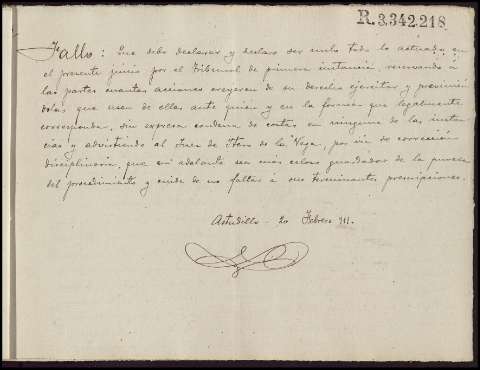 R.3.342.218
Fallo: Que debo declarar y declaro ser nulo todo lo actuado en
el presente juicio por el Tribunal de primera instancia, reservando á
las partes cuantas acciones creyeren de su derecho ejercitar y previnién
dolas que usen de ellas ante quien y en la forma que legalmente
corresponda, sin expresa condena de costas en ninguna de las instan
cias y advirtiendo al Juez de Itero de la Vega, por vía de corrección
disciplinaria, que en adelante sea más celoso guardador de la pureza
del procedimiento y cuide de no faltar á sus terminantes prescripciones.
Astudillo 20 Febrero 911.